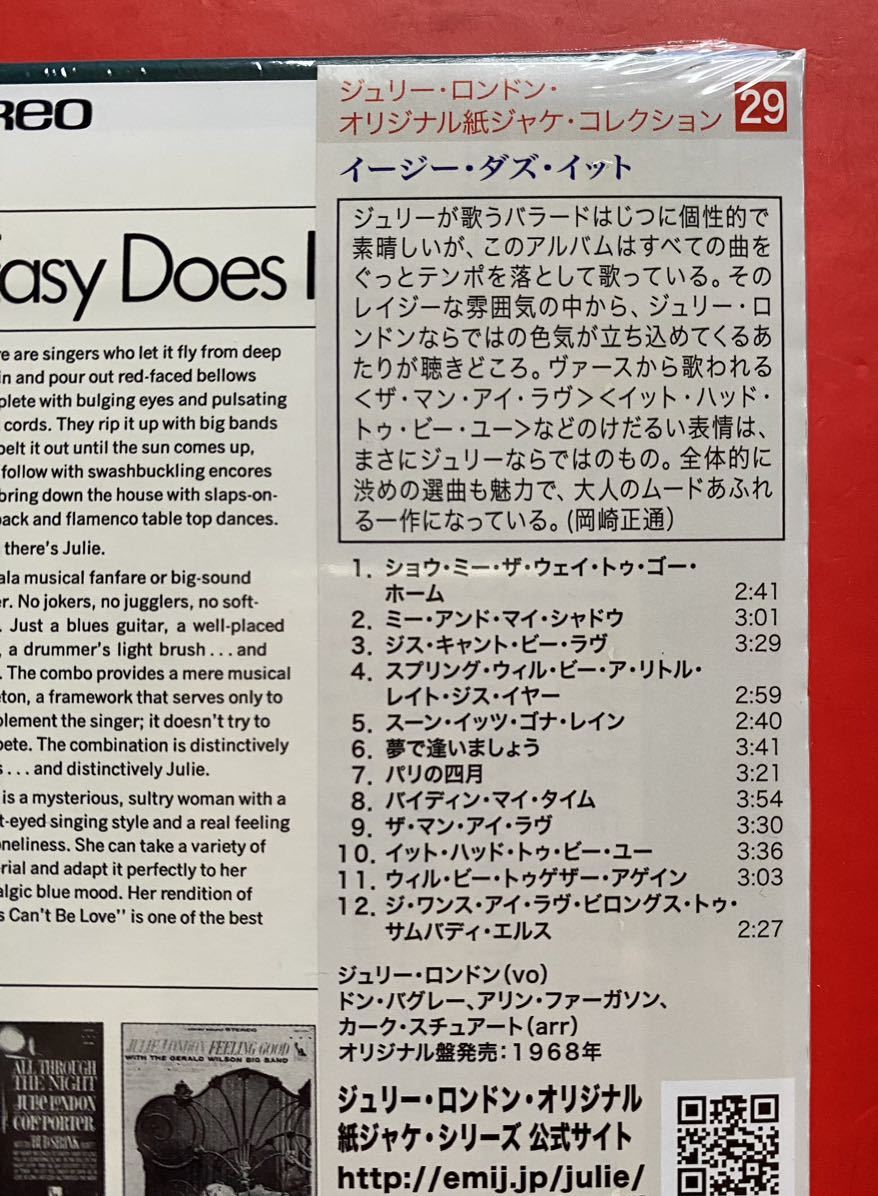 ReO
Easy Does I
re are singers who let it fly from deep
in and pour out red-faced bellows
plete with bulging eyes and pulsating
cords. They rip it up with big bands
belt it out until the sun comes up,
follow with swashbuckling encores
bring down the house with slaps-on-
back and flamenco table top dances.
there's Julie.
ala musical fanfare or big-sound
r. No jokers, no jugglers, no soft-
. Just a blues guitar, a well-placed
, a drummer's light brush...and
. The combo provides a mere musical
eton, a framework that serves only to
plement the singer; it doesn't try to
pete. The combination is distinctively
s...and distinctively Julie.
is a mysterious, sultry woman with a
t-eyed singing style and a real feeling
oneliness. She can take a variety of
erial and adapt it perfectly to her
algic blue mood. Her rendition of
s Can't Be Love" is one of the best
ALL THROUGH
THE NIGHT
JULIE LONDON
COLE PORTER
BUD SHANK
STEREO
JULIE LONDON FEELING GOOD
WITH THE GERALD WILSON BIG BAND
ジュリー・ロンドン・
オリジナル紙ジャケ・コレクション 29
イージー・ダズ・イット
ジュリーが歌うバラードはじつに個性的で
素晴しいが、このアルバムはすべての曲を
ぐっとテンポを落として歌っている。その
レイジーな雰囲気の中から、ジュリー・ロ
ンドンならではの色気が立ち込めてくるあ
たりが聴きどころ。ヴァースから歌われる
<ザ・マン・アイ・ラヴ><イット・ハッド・
トゥ・ビー・ユー>などのけだるい表情は、
まさにジュリーならではのもの。全体的に
渋めの選曲も魅力で、大人のムードあふれ
る一作になっている。(岡崎正通)
1. ショウ・ミー・ザ・ウェイ・トゥ・ゴー・
ホーム 2:41
2. ミー・アンド・マイ・シャドウ 3:01
3. ジス・キャント・ビー・ラヴ 3:29
4. スプリング・ウィル・ビー・ア・リトル・
レイト・ジス・イヤー 2:59
5. スーン・イッツ・ゴナ・レイン 2:40
6. 夢で逢いましょう 3:41
7. パリの四月 3:21
8. バイディン・マイ・タイム 3:54
9. ザ・マン・アイ・ラヴ 3:30
10. イット・ハッド・トゥ・ビー・ユー 3:36
11. ウィル・ビー・トゥゲザー・アゲイン 3:03
12. ジ・ワンス・アイ・ラヴ・ビロングス・トゥ・
サムバディ・エルス 2:27
ジュリー・ロンドン(vo)
ドン・バグレー、アリン・ファーガソン、
カーク・スチュアート(arr)
オリジナル盤発売:1968年
ジュリー・ロンドン・オリジナル
紙ジャケ・シリーズ 公式サイト
http://emij.jp/julie/